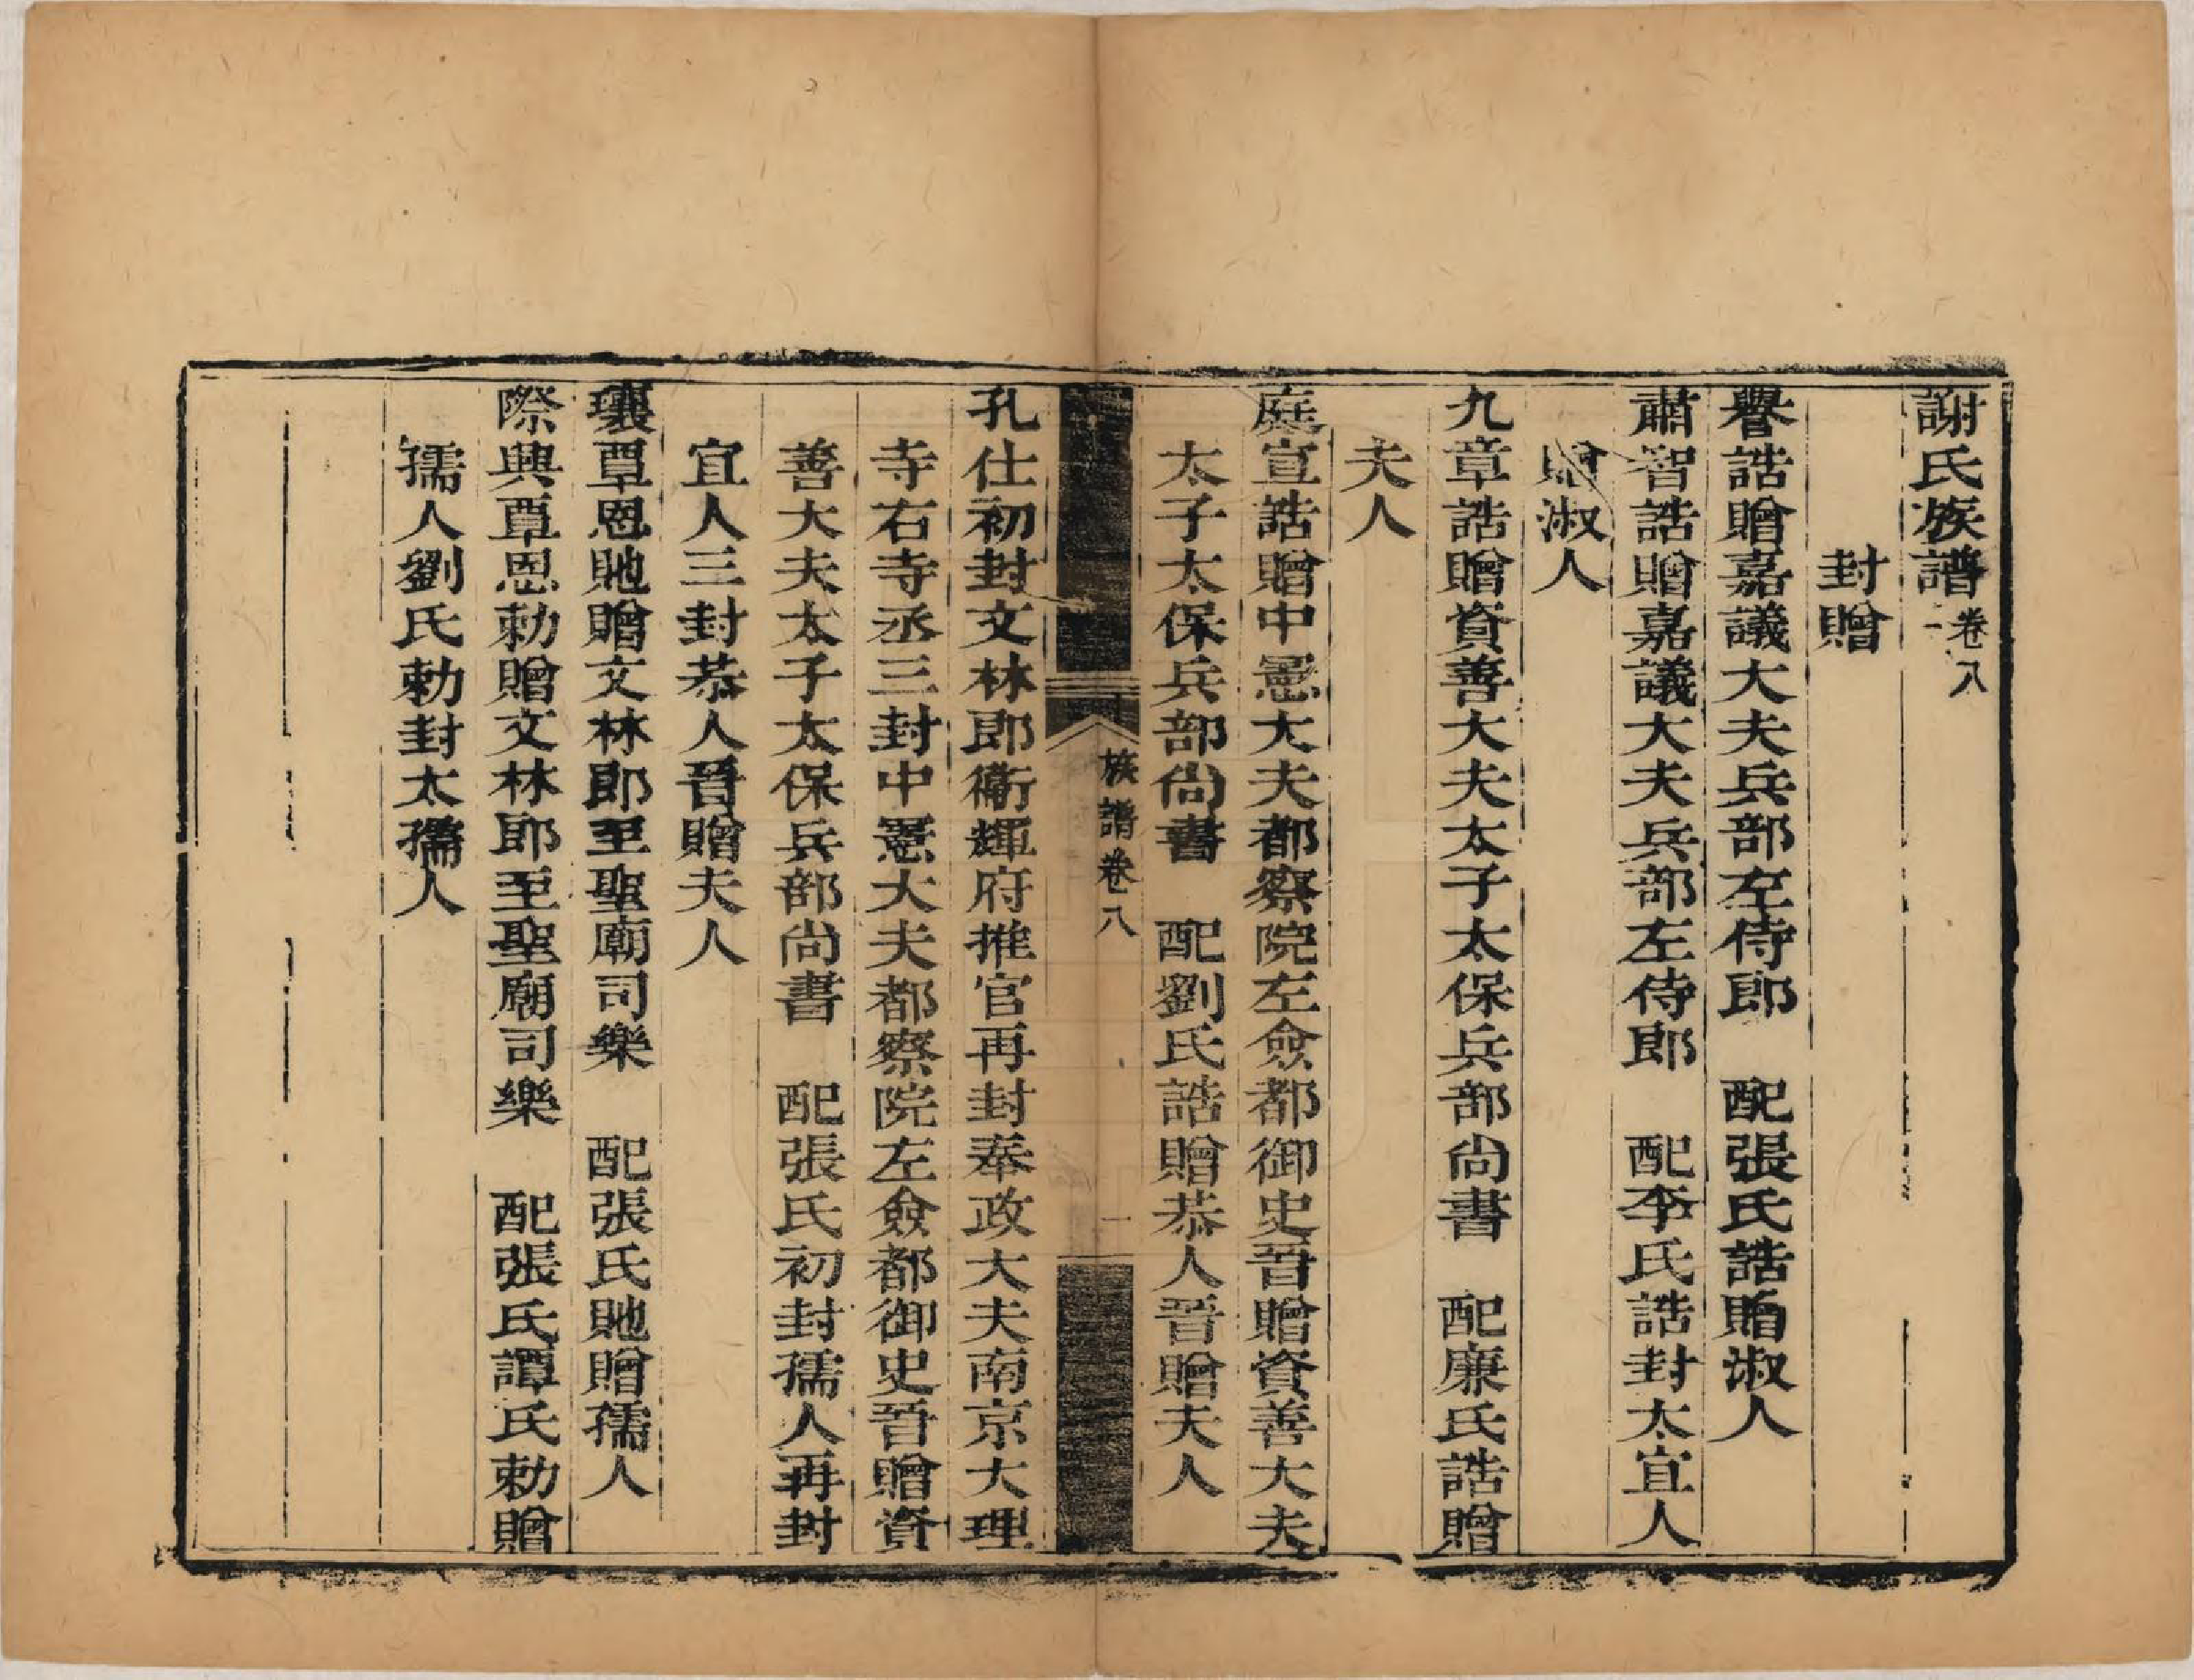 謝氏族譜卷八
封贈
譽誥贈嘉議大夫兵部左侍郎　配張氏誥贈淑人
肅智誥贈嘉議大夫兵部左侍郎　配李氏誥封太宜人
贈淑人
九章誥贈資善大夫太子太保兵部尚書　配廉氏誥贈
夫人
庭宣誥贈中憲大夫都察院左僉都御史晉贈資善大夫
太子太保兵部尚書　配劉氏誥贈恭人晉贈夫人
族譜卷八
一
孔仕初封文林郎衞輝府推官再封奉政大夫南京大理
寺右寺丞三封中憲大夫都察院左僉都御史晉贈資
善大夫太子太保兵部尚書　配張氏初封孺人再封
宜人三封恭人晉贈夫人
瓌覃恩貤贈文林郎至聖廟司樂　配張氏貤贈孺人
際興覃恩勅贈文林郎至聖廟司樂　配張氏譚氏勅贈
孺人劉氏勅封太孺人